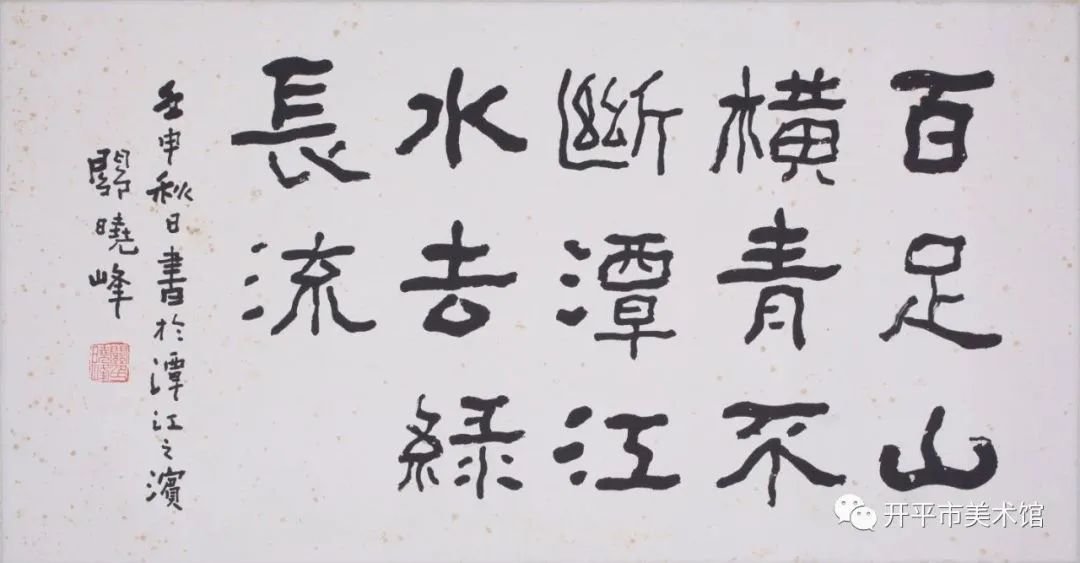 百足山
横青不
斷潭江
水去綠
長流
壬申秋日書於潭江之濱
關曉峰
开平市美术馆